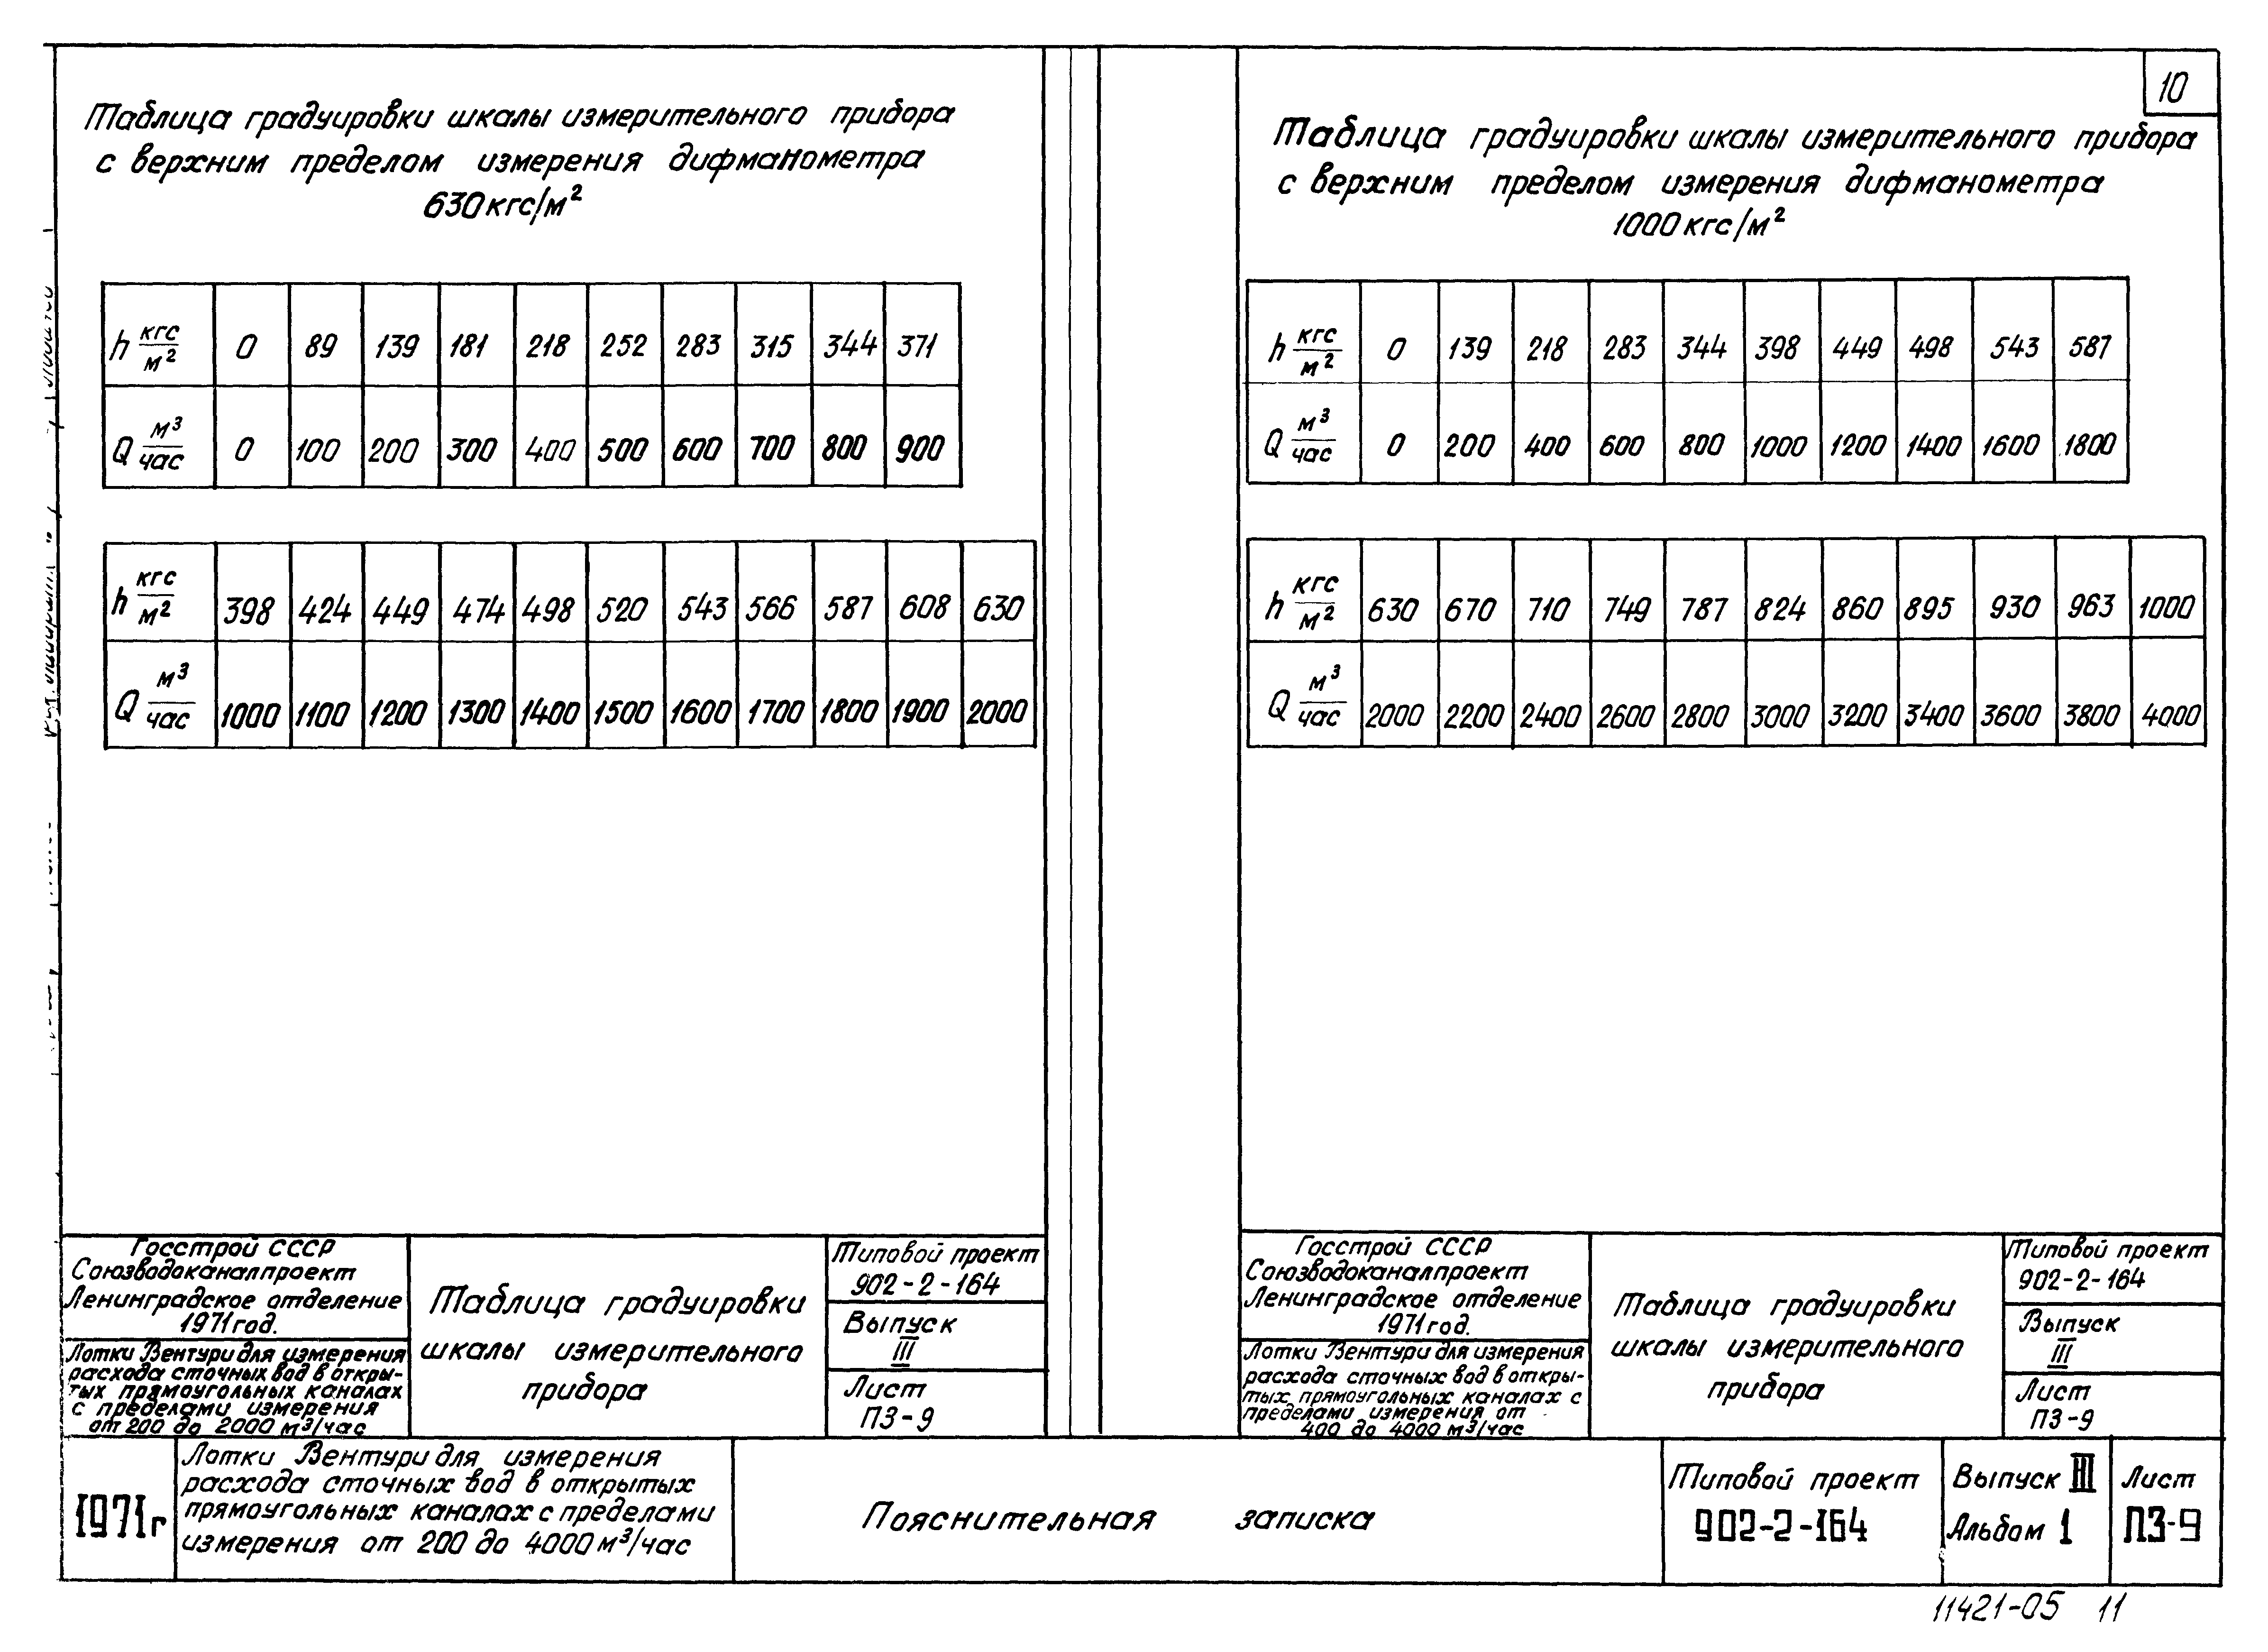 10
Таблица градуировки шкалы измерительного прибора
с верхним пределом измерения дифманометра
630 кгс/м²
h кгс/м² 0 89 139 181 218 252 283 315 344 371
Q м³/час 0 100 200 300 400 500 600 700 800 900
h кгс/м² 398 424 449 474 498 520 543 566 587 608 630
Q м³/час 1000 1100 1200 1300 1400 1500 1600 1700 1800 1900 2000
Госстрой СССР
Союзводоканалпроект
Ленинградское отделение
1971 год.
Лотки Вентури для измерения
расхода сточных вод в откры-
тых прямоугольных каналах
с пределами измерения
от 200 до 2000 м³/час
Таблица градуировки
шкалы измерительного
прибора
Типовой проект
902-2-164
Выпуск
III
Лист
ПЗ-9
Таблица градуировки шкалы измерительного прибора
с верхним пределом измерения дифманометра
1000 кгс/м²
h кгс/м² 0 139 218 283 344 398 449 498 543 587
Q м³/час 0 200 400 600 800 1000 1200 1400 1600 1800
h кгс/м² 630 670 710 749 787 824 860 895 930 963 1000
Q м³/час 2000 2200 2400 2600 2800 3000 3200 3400 3600 3800 4000
Госстрой СССР
Союзводоканалпроект
Ленинградское отделение
1971 год.
Лотки Вентури для измерения
расхода сточных вод в откры-
тых прямоугольных каналах с
пределами измерения от
400 до 4000 м³/час
Таблица градуировки
шкалы измерительного
прибора
Типовой проект
902-2-164
Выпуск
III
Лист
ПЗ-9
1971г
Лотки Вентури для измерения
расхода сточных вод в открытых
прямоугольных каналах с пределами
измерения от 200 до 4000 м³/час
Пояснительная записка
Типовой проект
902-2-164
Выпуск III
Альбом 1
Лист
ПЗ-9
11421-05 11